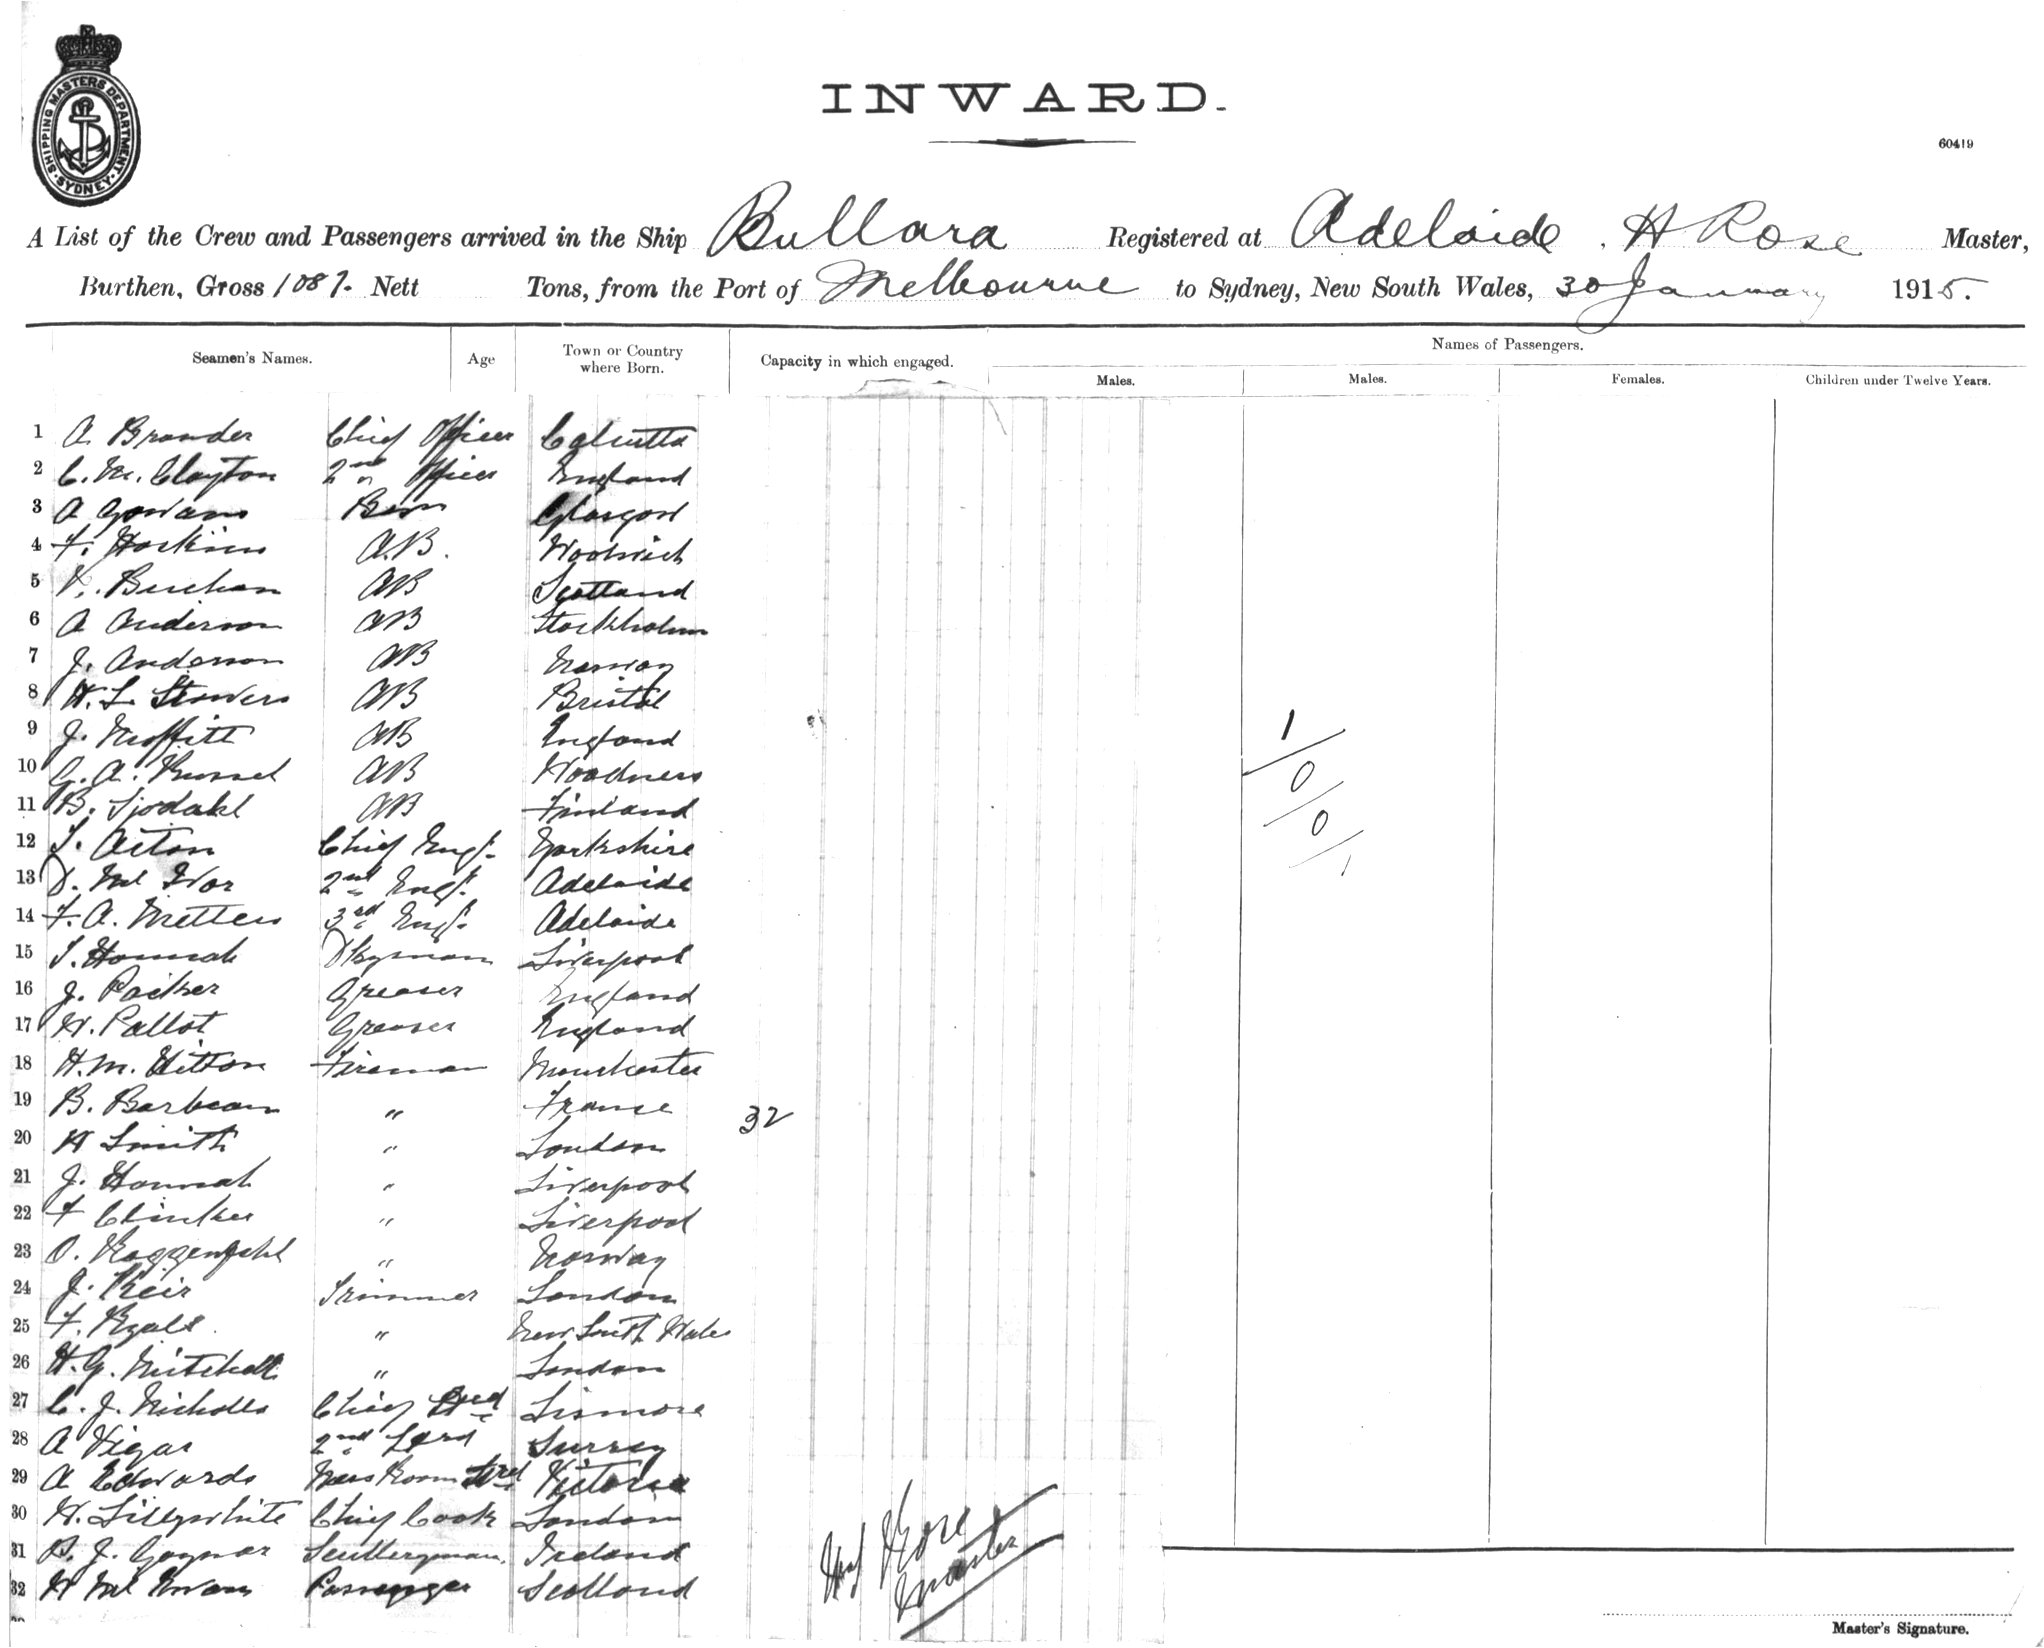 SHIPPING MASTERS DEPARTMENT · SYDNEY ·
INWARD.
60419
A List of the Crew and Passengers arrived in the Ship Bullara Registered at Adelaide, H Rose Master,
Burthen, Gross 1087. Nett Tons, from the Port of Melbourne to Sydney, New South Wales, 30 January 1915.
Seamen's Names. Age Town or Country where Born. Capacity in which engaged. Names of Passengers.
Males. Males. Females. Children under Twelve Years.
1 A. Brander Chief Officer Calcutta
2 C. M. Clayton 2nd Officer England
3 A Gowans Bsn Glasgow
4 F. Hoskins A.B. Woolwich
5 Buchan AB Scotland
6 A Anderson AB Stockholm
7 J. Anderson AB Norway
8 H. L. Stowers AB Bristol
9 J. Moffitt AB England
10 G. A. Russel AB
11 B. Sjodahl AB Finland
12 T. Aston Chief Engr. Yorkshire
13 D. 2nd Engr. Adelaide
14 F. A. Metters 3rd Engr. Adelaide
15 T. Hannah Dkyman Liverpool
16 J. Packer Greaser England
17 H. Pallot Greaser England
18 H. M. Fireman Manchester
19 B. Barbeau " France
32
20 H Smith " London
21 J. Hannah " Liverpool
22 F Clinker " Liverpool
23 O. " Norway
24 J. Keir Trimmer London
25 F. Ryall. " New South Wales
26 H. G. Mitchell " London
27 C. J. Nicholls Chief Stwd Lismore
28 A Vigar 2nd Stwd Surrey
29 A Edwards Mess Room Stwd Victoria
30 H. Lillywhite Chief Cook London
31 J. Gaynor Sculleryman. Ireland
32 Passenger Scotland
1/0/0/1
Rose
Master
Master's Signature.